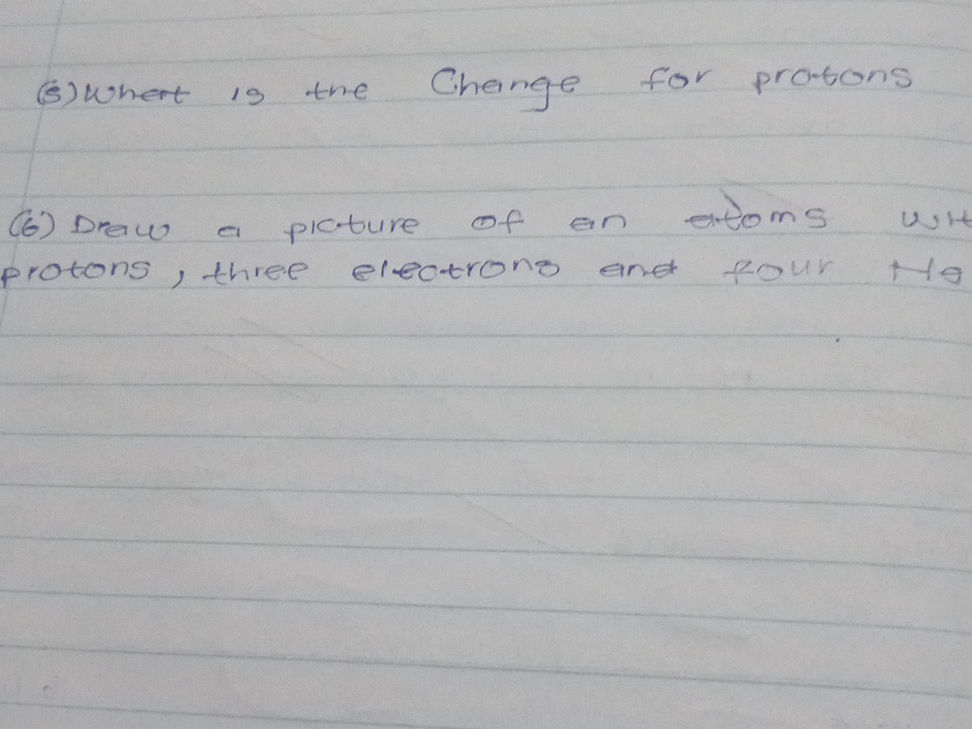 (5) What is the Change for protons
(6) Draw a picture of an atoms
protons, three electrons and four